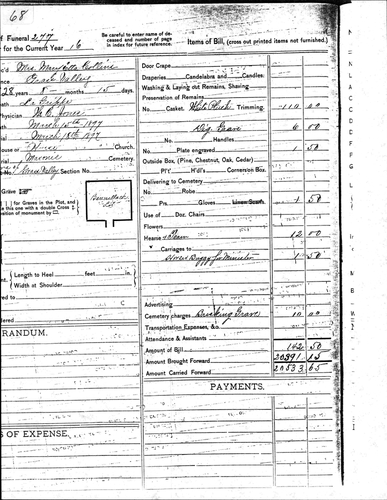 68
of Funeral 277
for the Current Year 16
Be carefull to enter name of de-
ceased and number of page
in index for future reference.
Items of Bill, (cross out printed items not furnished.)
Mrs. Collins
Grass Valley
28 years 8 months 15 days
La Grippe
Physician W. C. Jones
March 16th 1897
March 18th 1897
House of Church.
Masonic Cemetery.
Grass Valley Section No.
Grave
for Graves in the Plot, and
this one with a double Cross
position of monument by
Length to Heel feet in.
Width at Shoulder
C
ordered
MEMORANDUM.
S OF EXPENSE.
Door Crape
Draperies Candelabra and Candles.
Washing & Laying out Remains, Shaving
Preservation of Remains
No. Casket, White Plush Trimming, 110 00
Dig Grave 6 00
No. Handles
Plate engraved 1 50
Outside Box (Pine, Chestnut, Oak, Cedar)
Pl't H'dl's Corners on Box
Delivering to Cemetery
No. Robe
Prs. Gloves 1 50
Use of Doz. Chairs
Flowers
Hearse & Team 12 00
Carriages to
Buggy for Minister 1 50
Advertising
Cemetery charges Bricking Grave 10 00
Transportation Expenses, &c
Attendance & Assistants
Amount of Bill 142 50
Amount Brought Forward 20391 15
Amount Carried Forward 20533 65
PAYMENTS.